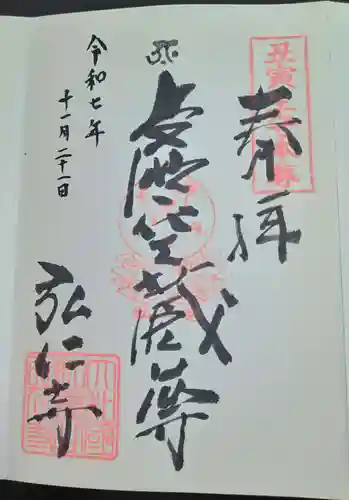 奉拝
虚空蔵尊
令和七年
十一月二十一日
弘仁寺